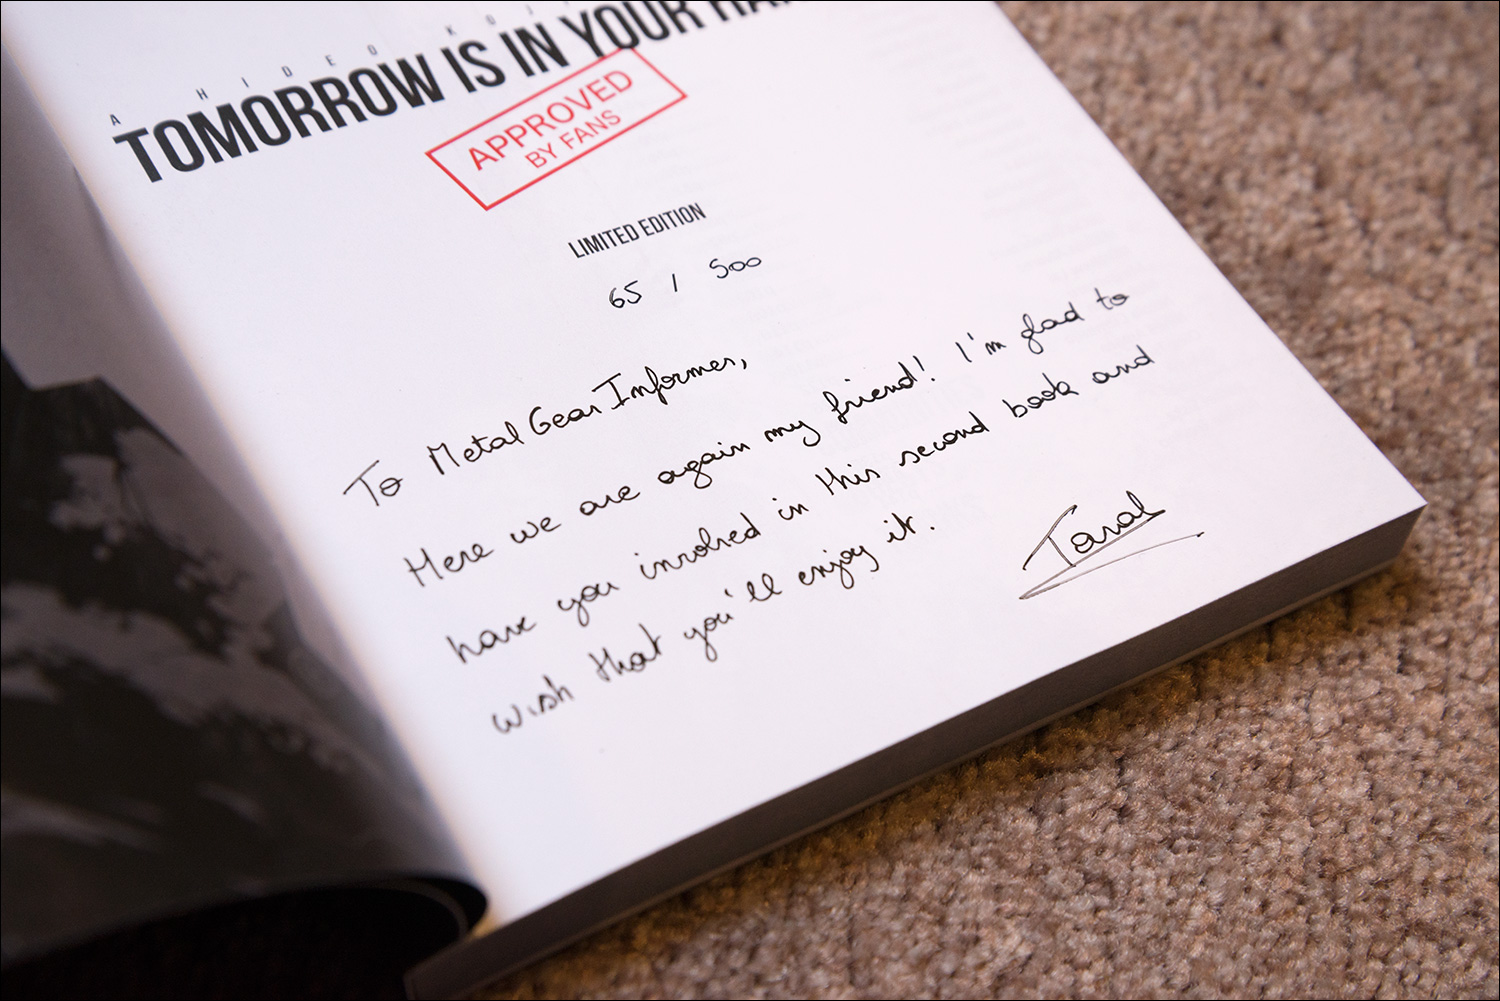 A HIDEO KOJI
TOMORROW IS IN YOUR HAN
APPROVED
BY FANS
LIMITED EDITION
65 / 500
To Metal Gear Informer,
Here we are again my friend! I'm glad to
have you involved in this second book and
wish that you'll enjoy it.